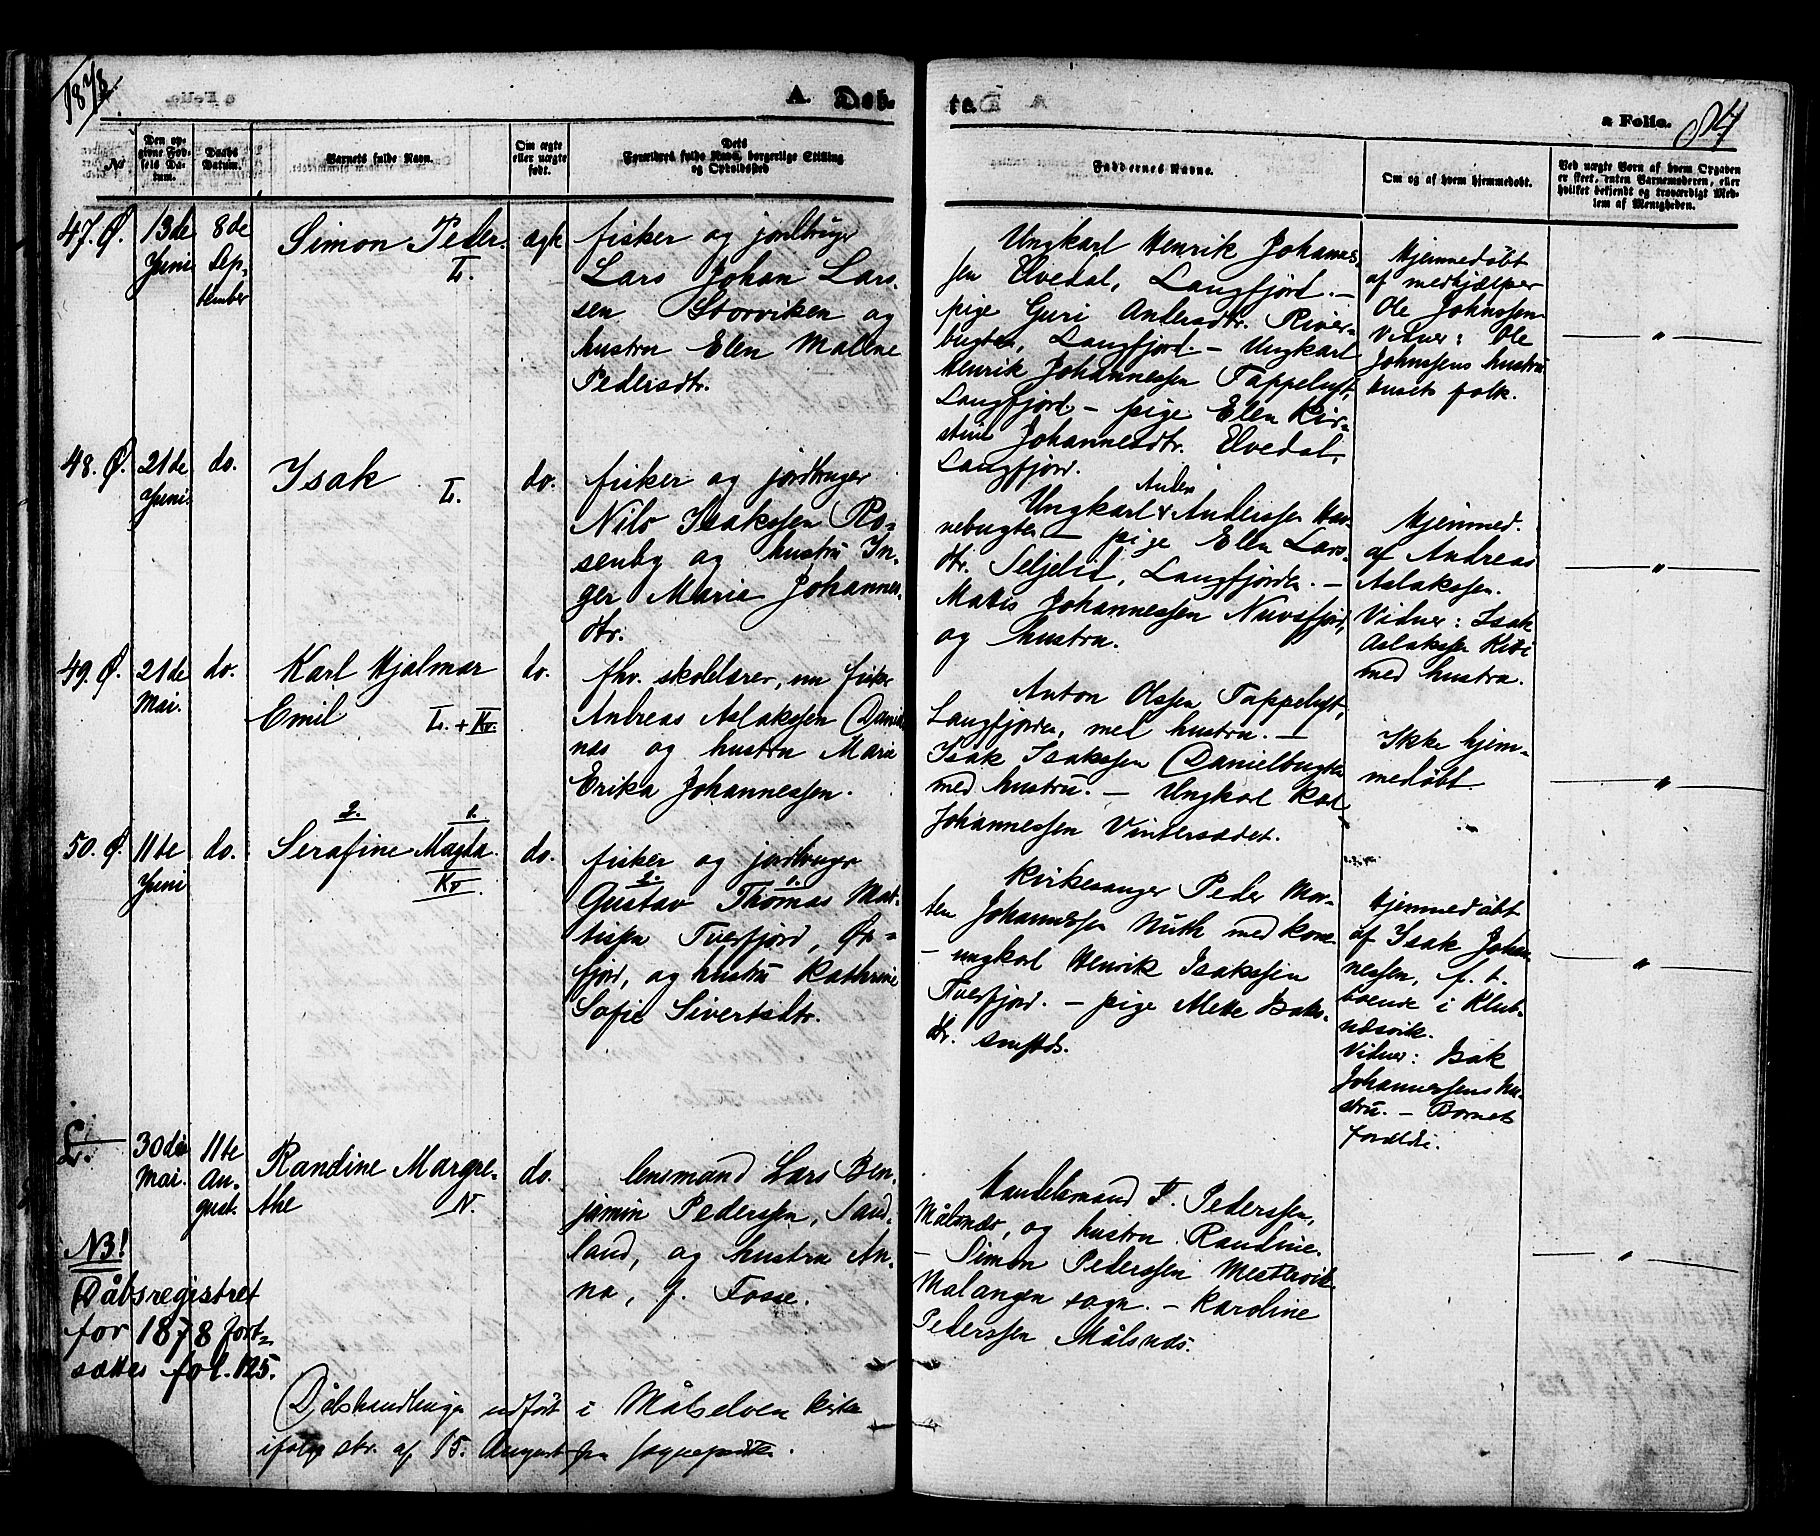 1878.
A. Døb-
te.
a Folio. 84
No
Den opgivne Fødsels Datum.
Daabs Datum.
Barnets fulde Navn.
Om ægte eller uægte født.
Dets Forældres fulde Navn, borgerlige Stilling og Opholdssted
Faddernes Navne.
Om og af hvem hjemmedøbt.
Ved uægte Børn af hvem Opgaven er skeet, enten Barnemoderen, eller hvilket bekjendt og troværdigt Medlem af Menigheden.
47. Ø.
13de
Juni
8de
Sep-
tember
Simon Peder.
L.
ægte
fisker og jordbruger
Lars Johan Lars-
sen Storviken og
hustru Elen Malene
Pedersdtr.
Ungkarl Henrik Johannes-
sen Elvedal, Langfjord. -
pige Guri Andersdtr. River-
bugten, Langfjord. - Ungkarl
Henrik Johannessen Tappeluft,
Langfjord - pige Elen Kir-
stine Johannesdtr. Elvedal,
Langfjord.
Hjemmedøbt
af medhjælper
Ole Johnssen
Vidner: Ole
Johnssens hustru
huset folk.
"
48. Ø.
21de
Juni.
do.
Isak
L.
do.
fisker og jordbruger
Nils Isakssen Ro-
senby og hustru In-
ger Marie Johannes-
dtr.
Anders
Ungkarl Anderssen
nebugten - pige Elen Lars-
dtr. Seljelid, Langfjorden. -
Matis Johannessen Nuvsfjord,
og hustru.
Hjemmed.
af Andreas
Aslakssen.
Vidner: Isak
Aslakssen
med hustru.
"
49. Ø.
21de
Mai.
do.
Karl Hjalmar
Emil L. + Kv.
do.
fhv. skolelærer, nu fisker
Andreas Aslakssen Daniels-
næs og hustru Maria
Erika Johannessen.
Anton Olssen Tappeluft,
Langfjorden, med hustru. -
Isak Isakssen Danielbugten
med hustru. - Ungkarl Karl
Johannessen Vintersædet.
Ikke hjem-
medøbt
"
50. Ø.
11te
Juni
do.
2. 1.
Serafine Magda.
Kv
do.
fisker og jordbruger
2. 1.
Gustav Thomas Mat-
tisen Tverfjord, Øx-
fjord, og hustru Kathrine
Sofie Sivertsdtr.
Kirkesanger Peder Mor-
ten Johannessen Muth med kone
- ungkarl Henrik Isakssen
Tverfjord. - pige Mette Isaks-
dtr. smstds.
Hjemmedøbt
af Isak Johan-
nessen, f. t.
boende i Klub-
nesvik.
Vidner: Isak
Johannessens hu-
stru. - Barnets
forældre.
"
L.
30de
Mai.
11te
Au-
gust.
Randine Margre-
the N.
do.
lensmand Lars Ben-
jamin Pederssen, Sand-
land, og hustru An-
na, f. Fosse.
Handelsmand P. Pederssen,
Målsnes, og hustru Randine.
- Simon Pederssen Mestervik
Malangen sogn. - Karoline
Pederssen Målsnes.
"
NB!
Dåbsregistret
for 1878 fort-
sættes fol. 125.
Dåbshandlingen udført i Målselven kirke
ifølge skr. af 15. August fra sognepræsten.